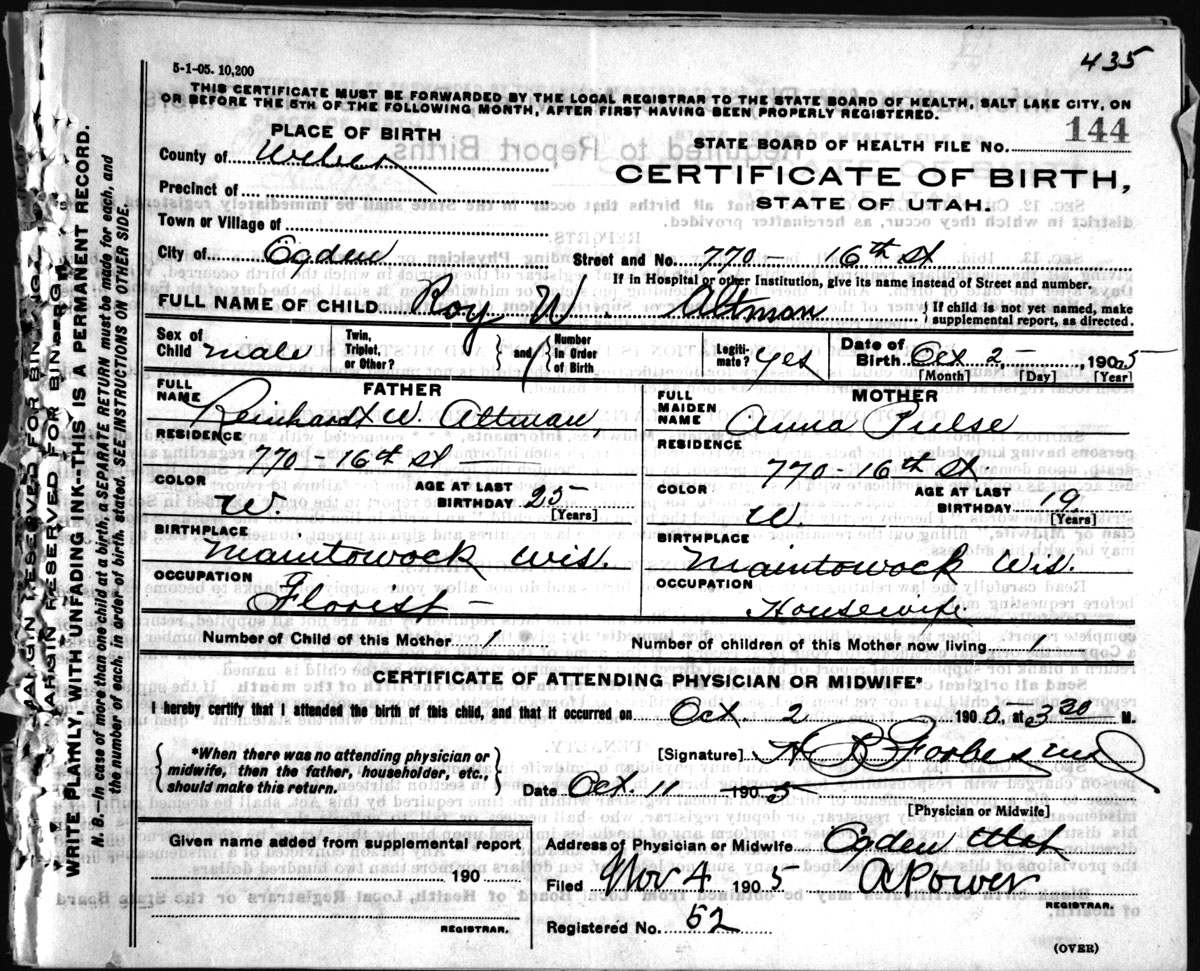 435
5-1-05. 10,200
THIS CERTIFICATE MUST BE FORWARDED BY THE LOCAL REGISTRAR TO THE STATE BOARD OF HEALTH, SALT LAKE CITY, ON
OR BEFORE THE 5TH OF THE FOLLOWING MONTH, AFTER FIRST HAVING BEEN PROPERLY REGISTERED.
PLACE OF BIRTH
STATE BOARD OF HEALTH FILE NO. 144
County of Weber
CERTIFICATE OF BIRTH,
Precinct of
STATE OF UTAH.
Town or Village of
City of Ogden Street and No. 770 - 16th St
If in Hospital or other Institution, give its name instead of Street and number.
FULL NAME OF CHILD Roy W. Altman { If child is not yet named, make supplemental report, as directed.
Sex of Child male Twin, Triplet, or Other? } and { Number in Order of Birth } 1 Legitimate? yes Date of Birth Oct 2 - 1905
[Month] [Day] [Year]
FATHER MOTHER
FULL NAME Reinhardt W. Altman, FULL MAIDEN NAME Anna Pulse
RESIDENCE 770 - 16th St RESIDENCE 770 - 16th St.
COLOR W. AGE AT LAST BIRTHDAY 25 [Years] COLOR W. AGE AT LAST BIRTHDAY 19 [Years]
BIRTHPLACE Maintowock Wis. BIRTHPLACE Maintowock Wis.
OCCUPATION Florist - OCCUPATION Housewife
Number of Child of this Mother 1 Number of children of this Mother now living 1
CERTIFICATE OF ATTENDING PHYSICIAN OR MIDWIFE*
I hereby certify that I attended the birth of this child, and that it occurred on Oct. 2 1905, at 3 30 M.
{ *When there was no attending physician or midwife, then the father, householder, etc., should make this return. }
[Signature] H B Forbes md
Date Oct. 11 1905
[Physician or Midwife]
Given name added from supplemental report
190
REGISTRAR.
Address of Physician or Midwife Ogden Utah
Filed Nov 4 1905 A Power
REGISTRAR.
Registered No. 52
(OVER)
MARGIN RESERVED FOR BINDING
WRITE PLAINLY, WITH UNFADING INK—THIS IS A PERMANENT RECORD.
N. B.—In case of more than one child at a birth, a SEPARATE RETURN must be made for each, and
the number of each, in order of birth, stated. SEE INSTRUCTIONS ON OTHER SIDE.